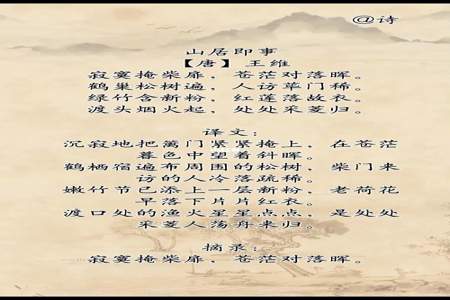 @诗
山居即事
【唐】 王维
寂寞掩柴扉，苍茫对落晖。
鹤巢松树遍，人访荜门稀。
绿竹含新粉，红莲落故衣。
渡头烟火起，处处采菱归。
译文：
沉寂地把篱门紧紧掩上，在苍茫
暮色中望着斜晖。
鹤栖宿遍布周围的松树，柴门来
访的人冷落疏稀。
嫩竹节已添上一层新粉，老荷花
早落下片片红衣。
渡口处的渔火星星点点，是处处
采菱人荡舟来归。
摘录：
寂寞掩柴扉，苍茫对落晖。